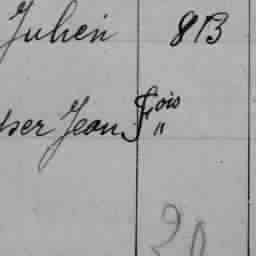 Julien 8B
ser Jean Fois "
20